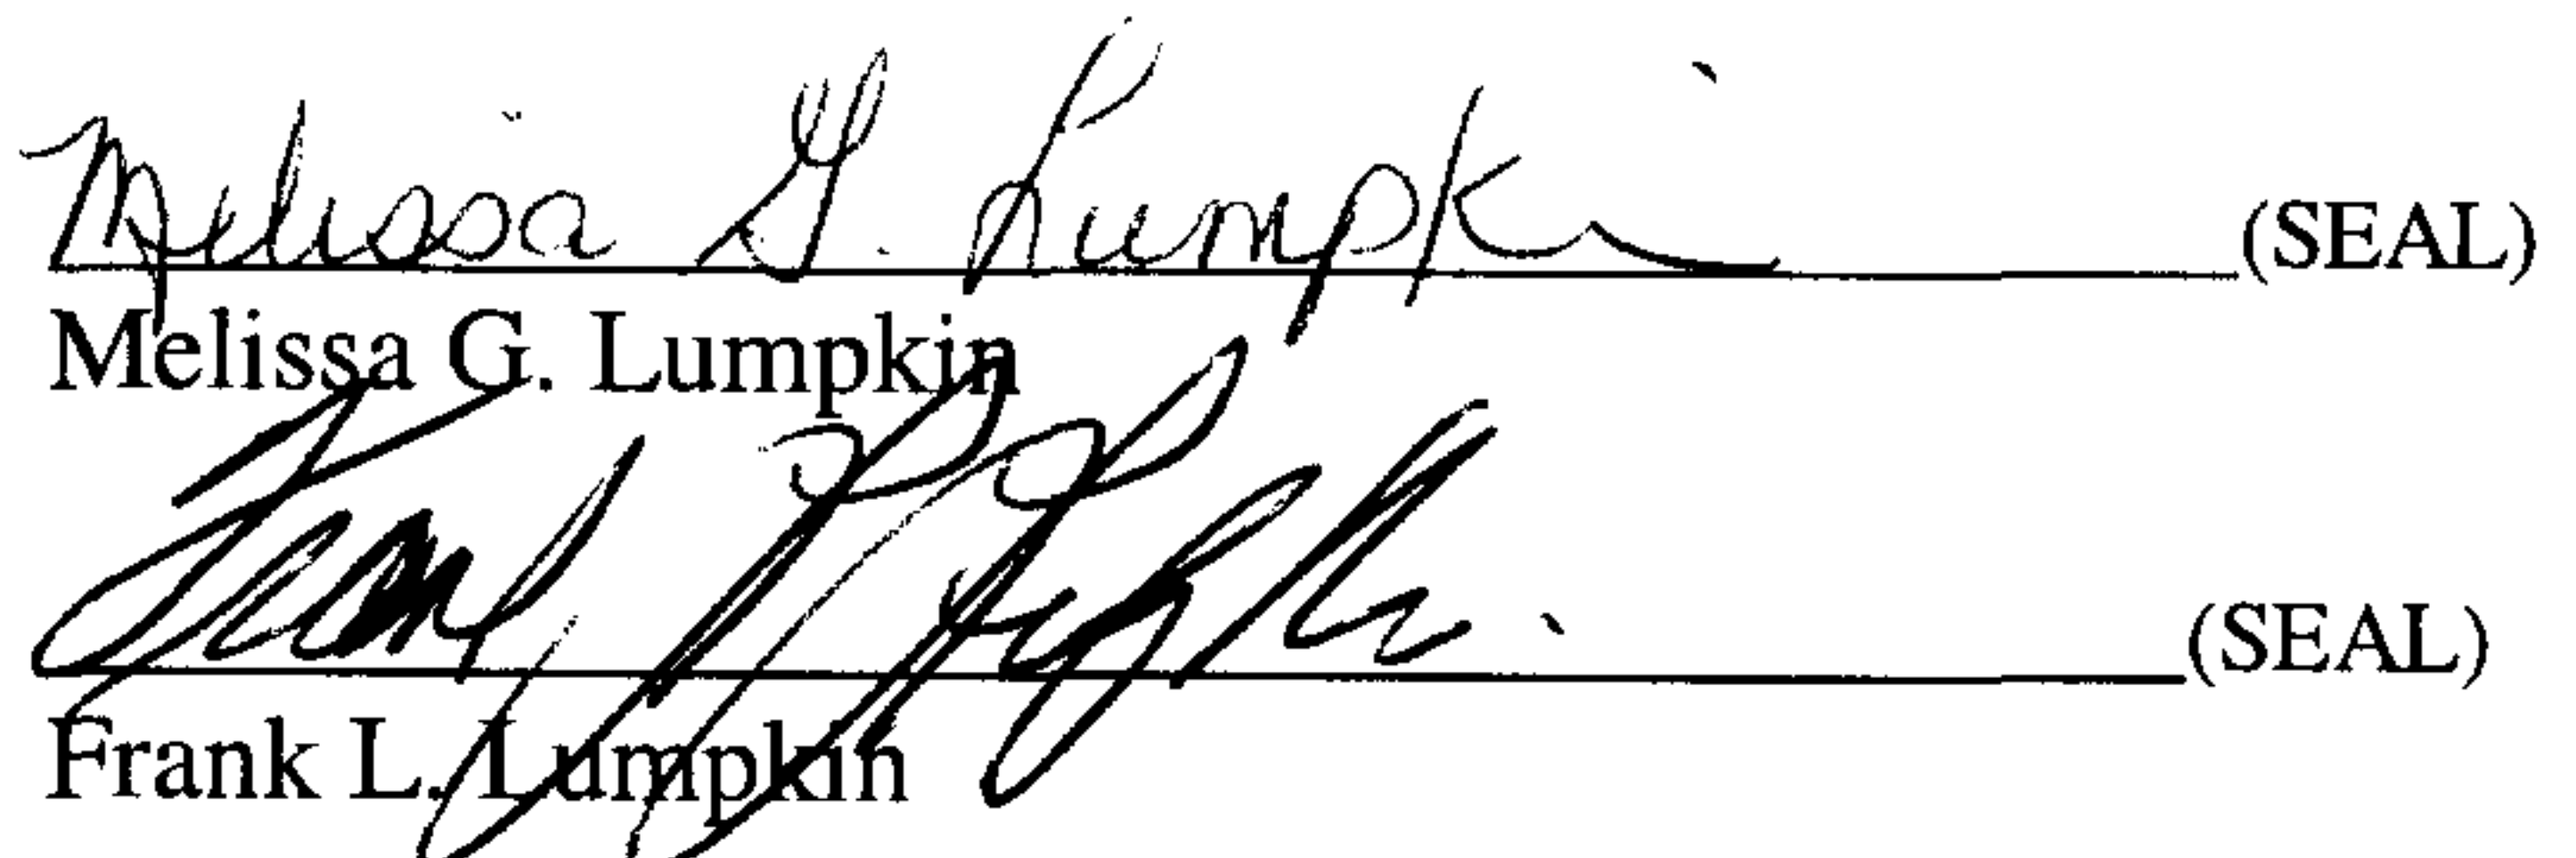 Melissa G. Lumpkin (SEAL)
Melissa G. Lumpkin
Frank L. Lumpkin (SEAL)
Frank L. Lumpkin